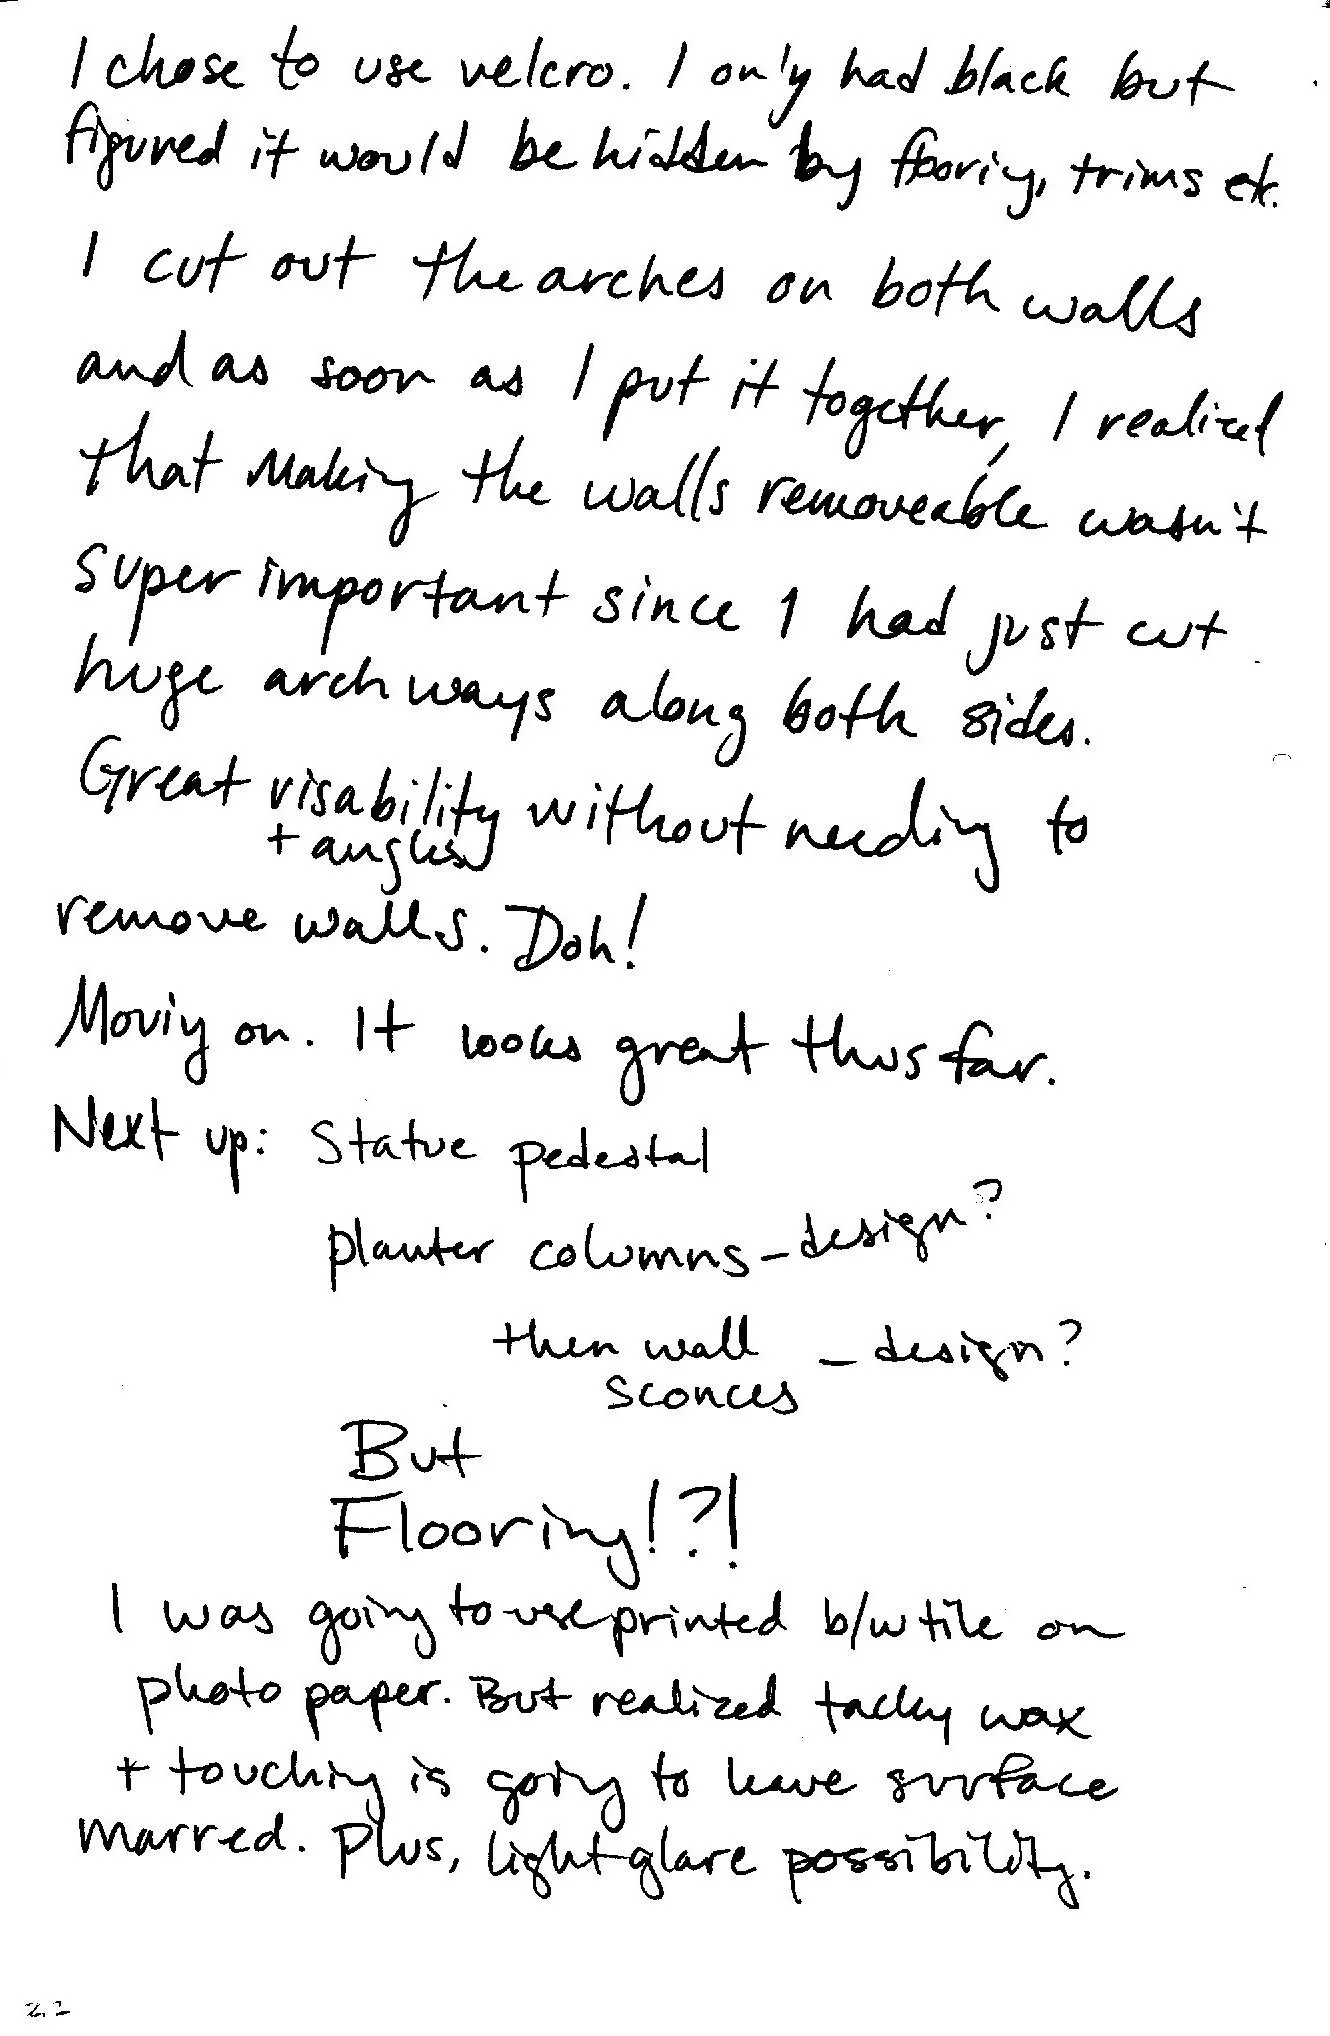 I chose to use velcro. I only had black but
figured it would be hidden by flooring, trims etc.
I cut out the arches on both walls
and as soon as I put it together, I realized
that making the walls removeable wasn't
super important since I had just cut
huge archways along both sides.
Great visability without needing to
+ angles
remove walls. Doh!
Moving on. It looks great thus far.
Next up: Statue pedestal
planter columns - design?
then wall - design?
sconces
But
Flooring!?!
I was going to use printed b/w tile on
photo paper. But realized tacky wax
+ touching is going to leave surface
marred. Plus, light glare possibility.
22